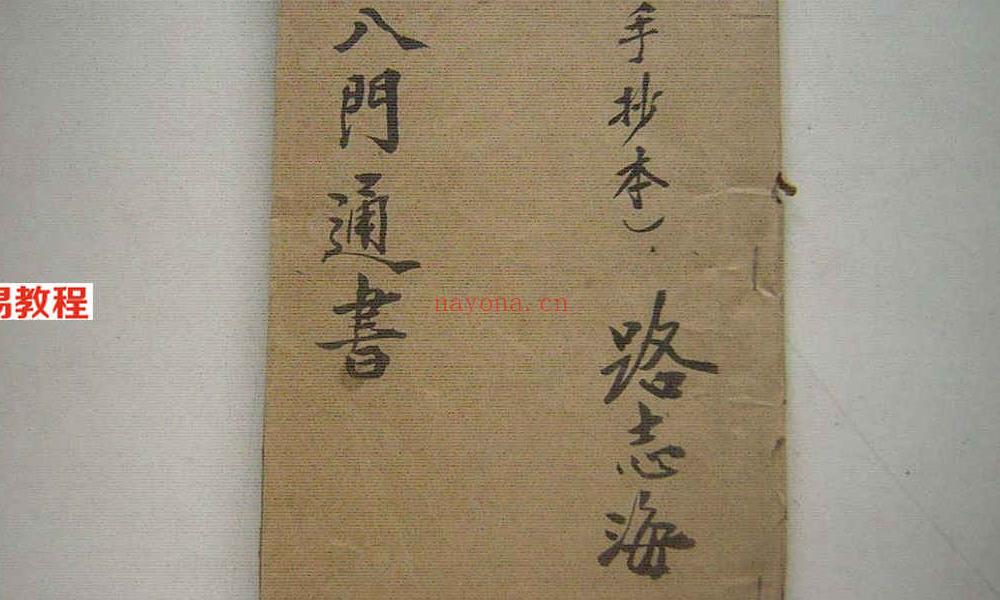 手抄本）
路志海
八門通書
易教程
nayona.cn